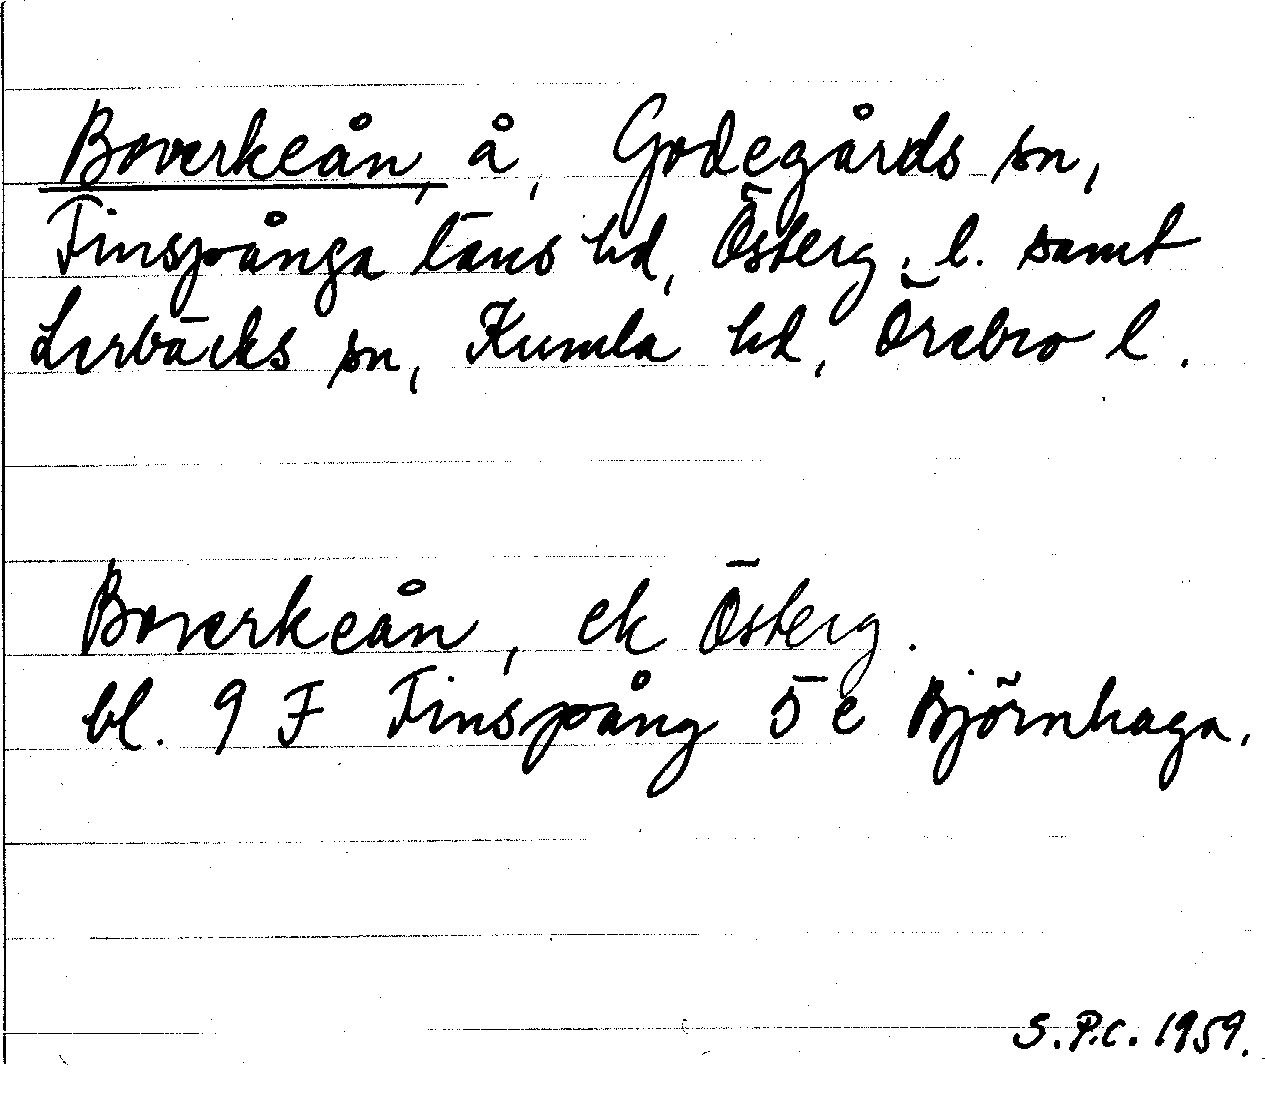 Boverkeån, å, Godegårds sn,
Finspånga läns hd, Österg. l. samt
Lerbäcks sn, Kumla hd, Örebro l.
Boverkeån, ek Österg.
bl. 9 F Finspång 5 e Björnhaga.
S.P.C. 1959.